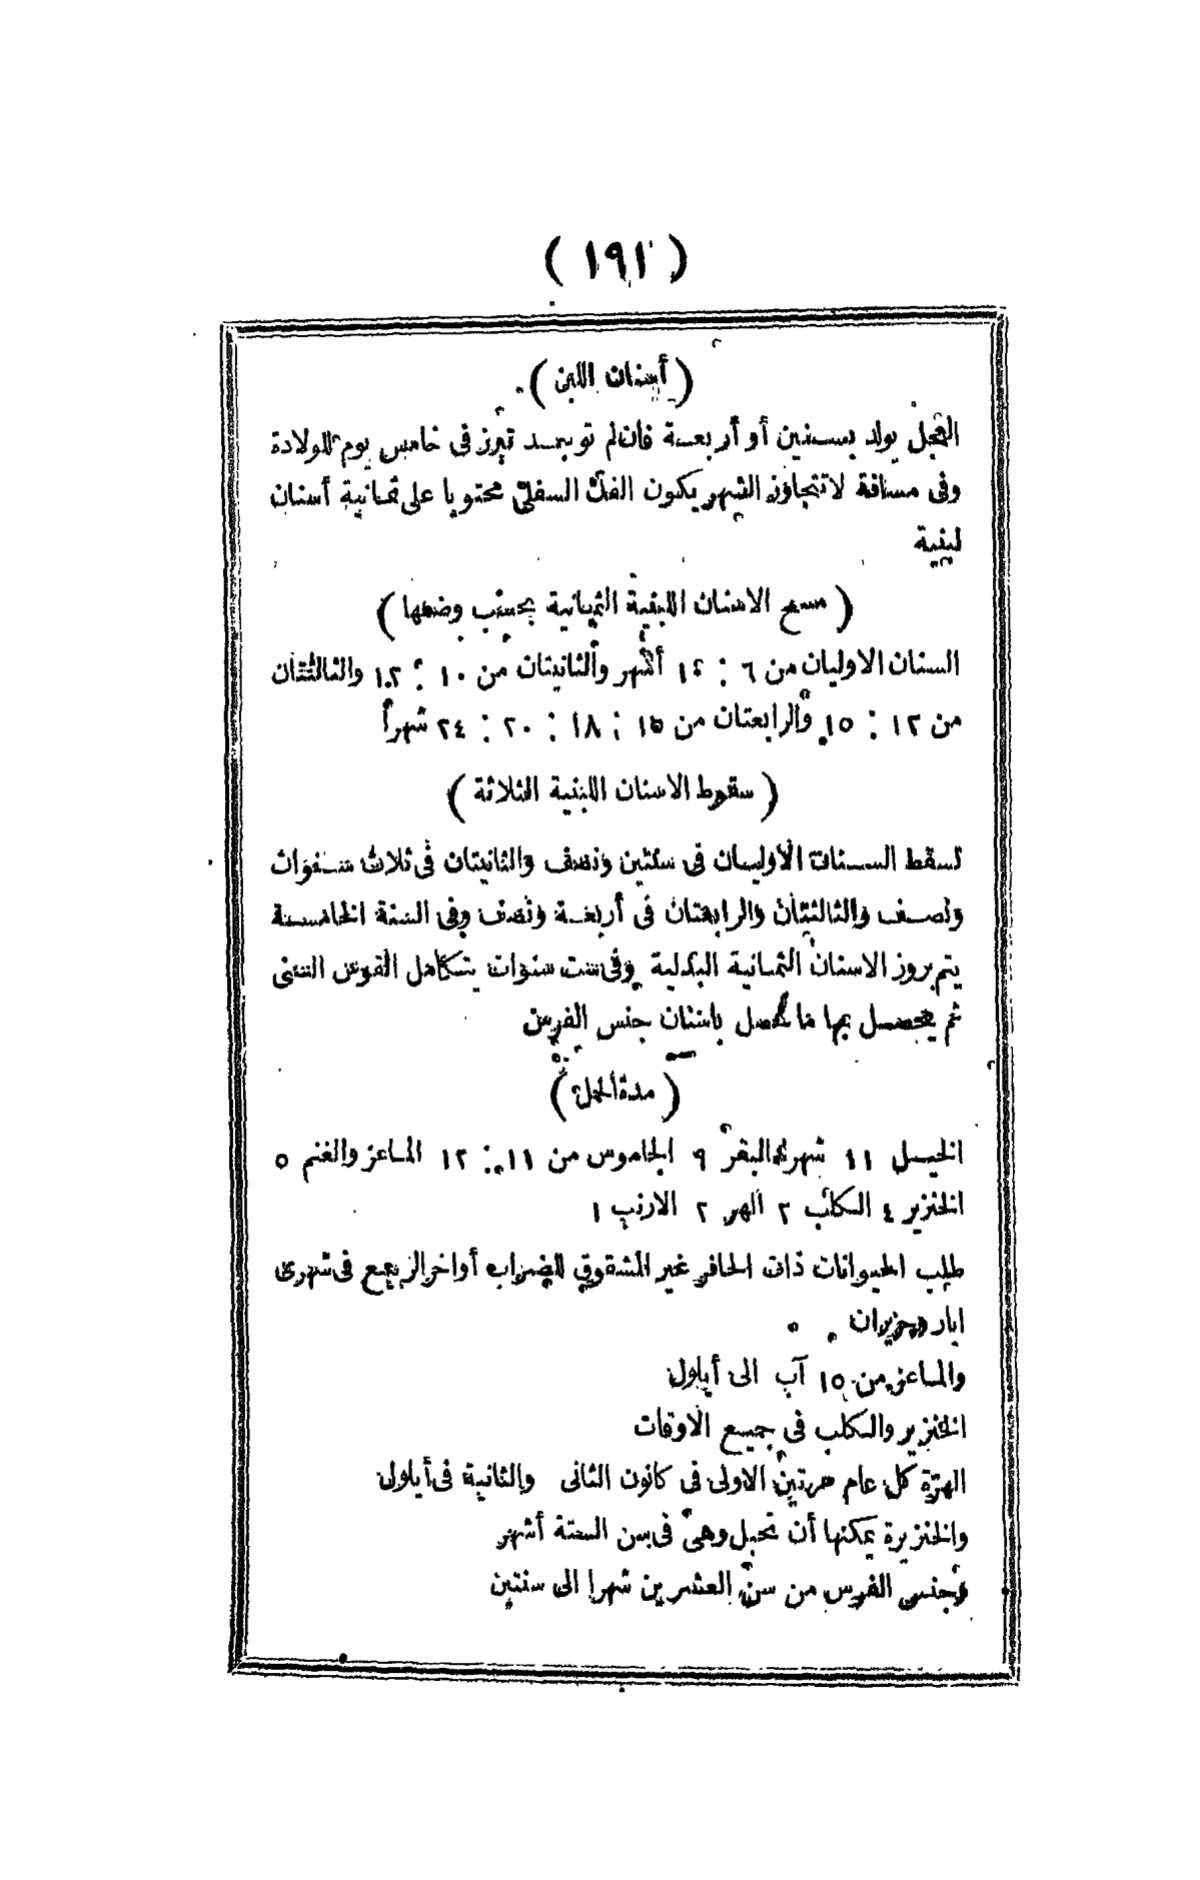 ( ١٩١ )
( أسنان اللبن )
العجل يولد بسنين أو أربعة فان لم توجد تبرز في خامس يوم للولادة
وفى مسافة لاتتجاوز الشهر يكون الفك السفلى محتويا على ثمانية أسنان
لبنية
( مسح الاسنان اللبنية الثمانية بحسب وضعها )
السنان الاوليان من ٦ : ١٤ أشهر والثانيتان من ١٠ : ١٢ والثالثتان
من ١٢ : ١٥ والرابعتان من ١٥ : ١٨ : ٢٠ : ٢٤ شهرا
( سقوط الاسنان اللبنية الثلاثة )
تسقط السنان الاوليان فى سنتين ونصف والثانيتان فى ثلاث سنوات
ونصف والثالثتان والرابعتان فى أربعة ونصف وفى السنة الخامسة
يتم بروز الاسنان الثمانية البدلية وفى ست سنوات يتكامل القوس السنى
ثم يحصل بها ما يحصل باسنان جنس الفرس
( مدة الحمل )
الخيل ١١ شهرا البقر ٩ الجاموس من ١١ : ١٢ الماعز والغنم ٥
الخنزير ٤ الكلب ٢ الهر ٢ الارنب ١
طلب الحيوانات ذات الحافر غير المشقوق للضراب أواخر الربيع فى شهرى
ايار وحزيران
والماعز من ١٥ آب الى أيلول
الخنزير والكلب فى جميع الاوقات
الهرّة كل عام مرتين الاولى فى كانون الثانى والثانية فى أيلول
والخنزيرة يمكنها أن تحبل وهى فى سن الستة أشهر
وجنس الفرس من سن العشرين شهرا الى سنتين